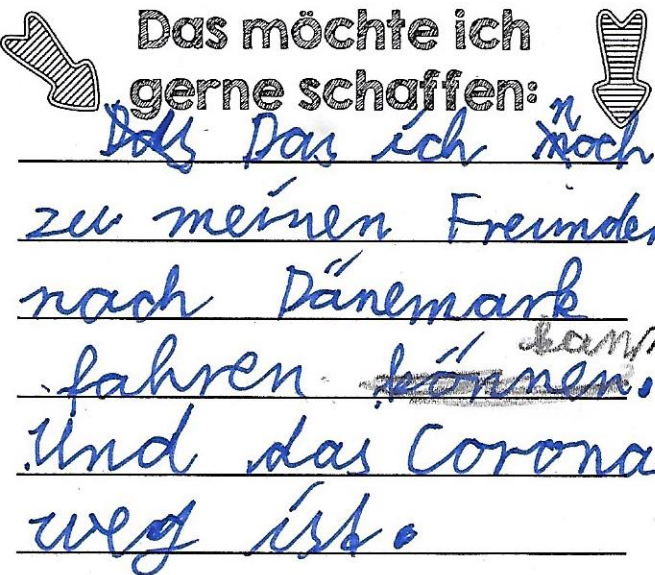 Das möchte ich
gerne schaffen:
Das Das ich noch
zu meinen Freunden
nach Dänemark
fahren können. kann
Und das Corona
weg ist.